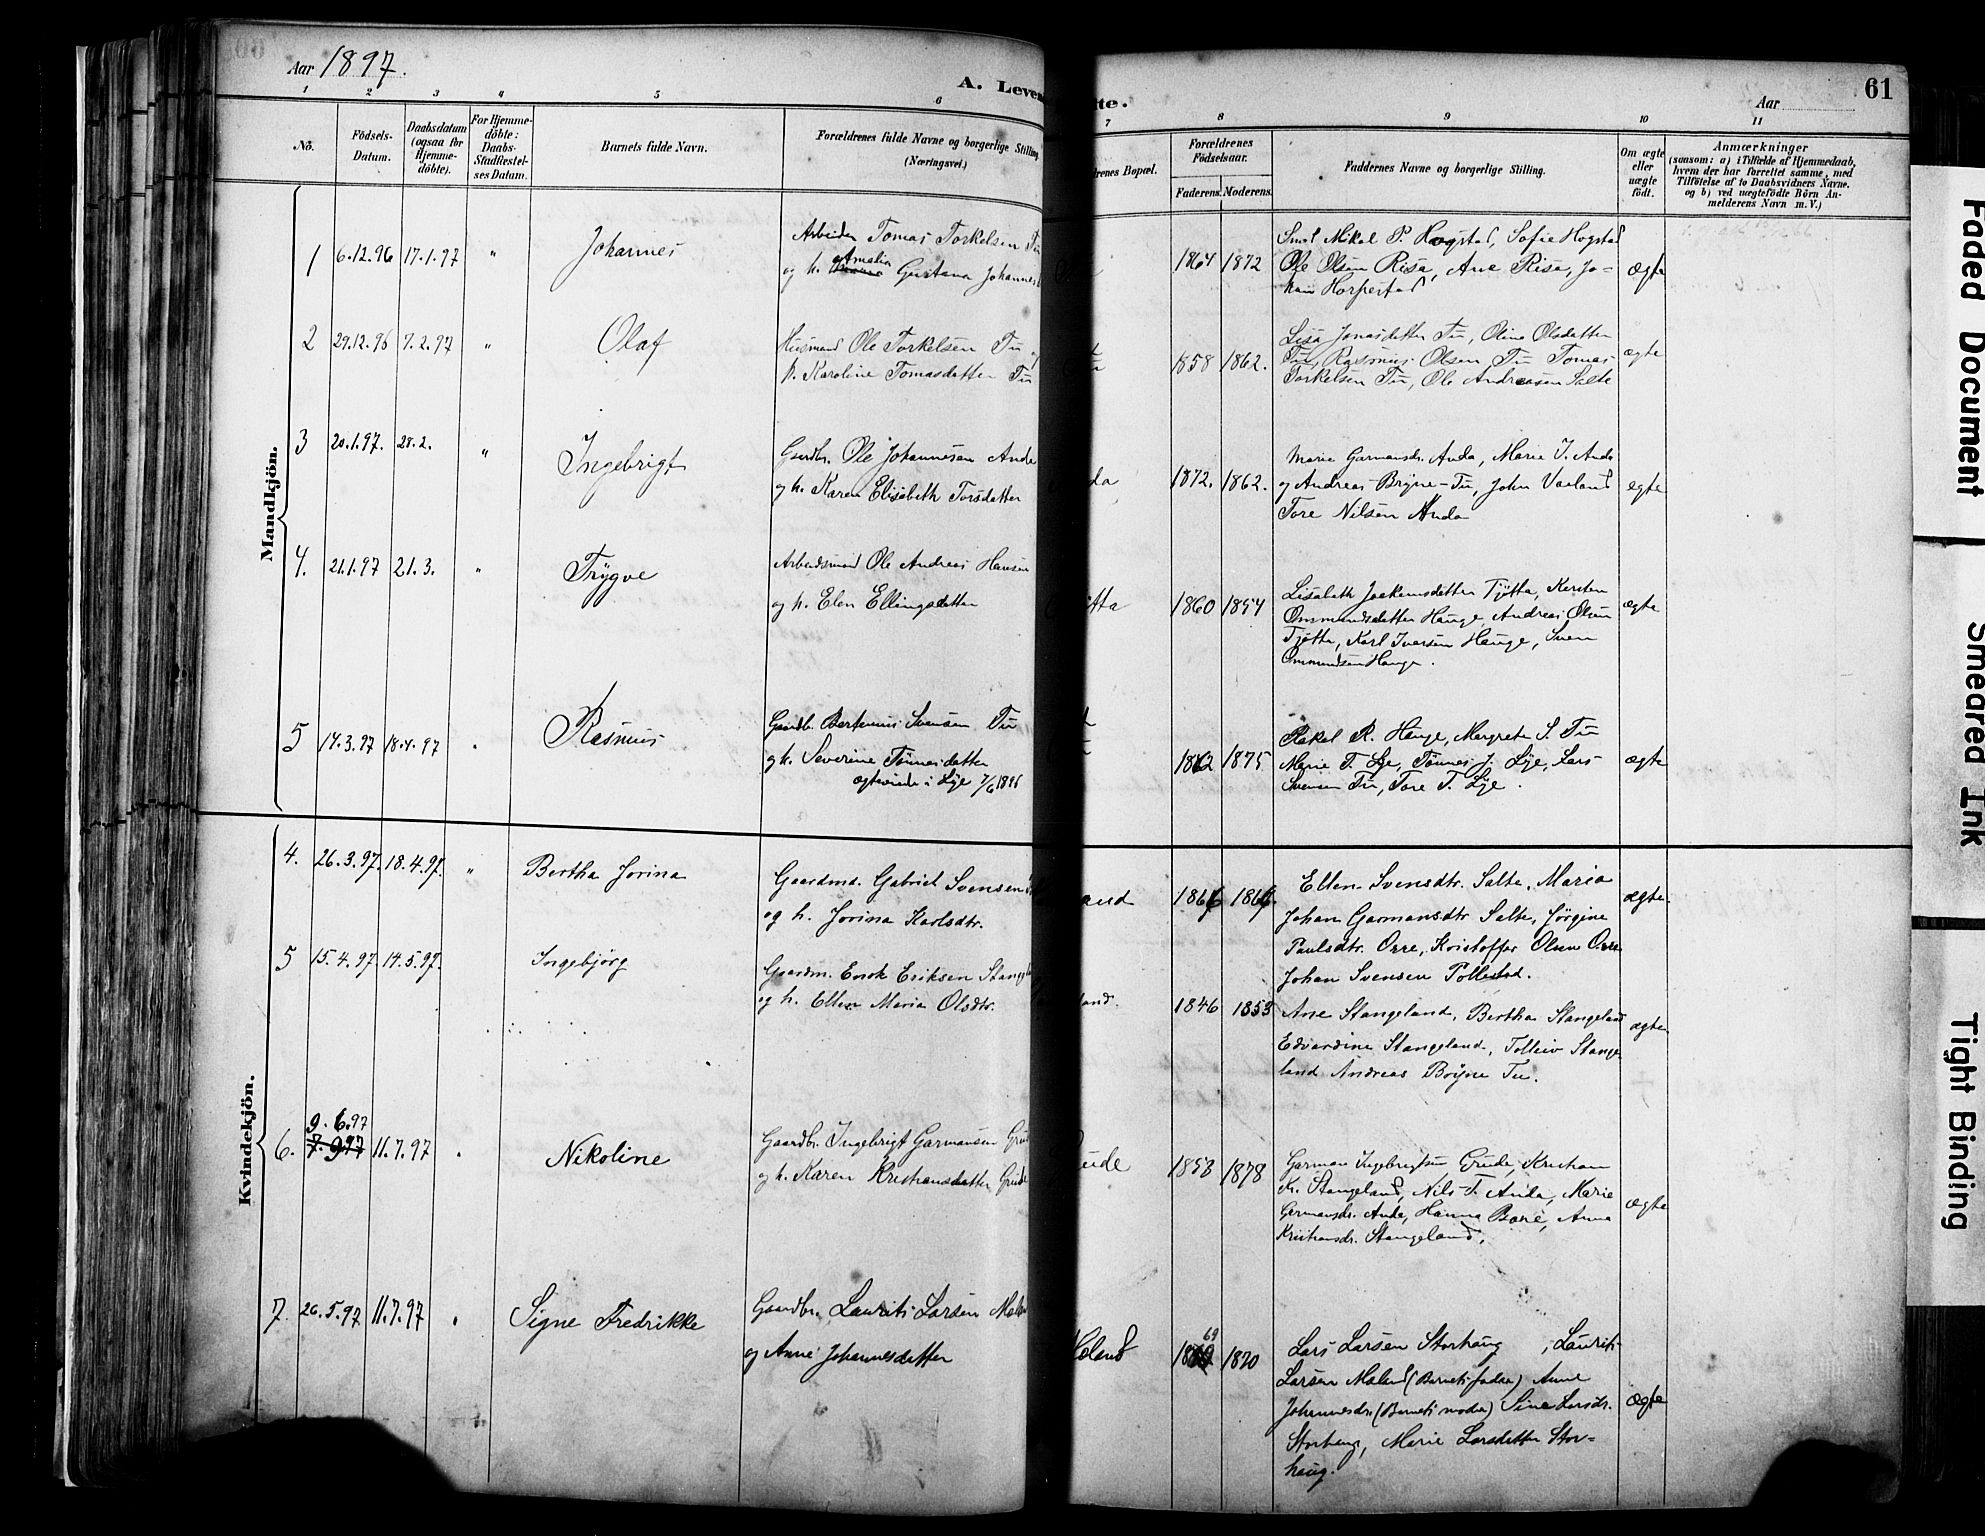 Aar 1897.
A. Leven
te.
Aar
61
1 2 3 4 5 6 7 8 9 10 11
No.
Födsels-
Datum.
Daabsdatum
(ogsaa for
Hjemme-
döbte).
For Hjemme-
döbte:
Daabs-
Stadfæstel-
ses Datum.
Barnets fulde Navn.
Forældrenes fulde Navne og borgerlige Stilling
(Næringsvei.)
drenes Bopæl.
Forældrenes
Födselsaar.
Faderens. Moderens.
Faddernes Navne og borgerlige Stilling.
Om ægte
eller
uægte
födt.
Anmærkninger
(saasom: a) i Tilfælde af Hjemmedaab,
hvem der har forrettet samme, med
Tilföielse af to Daabsvidners Navne.
og b) ved uægtefödte Börn An-
melderens Navn m.V.)
Mandkjön.
1 6.12.96 17.1.97 " Johannes
Arbeider Tomas Torkelsen Tu
Amalia
og h. Gustava Johannesd
1864 1872
Smed Mikal P. Hogstad, Sofie Hogstad
Ole Olsen Risa, Ane Risa, Jo-
han Horpestad
ægte
2 29.12.96 7.2.97 " Olaf
Husmand Ole Torkelsen Tu og
h. Karoline Tomasdatter Tu
1858 1862.
Lisa Jonasdatter Tu, Oline Olsdatter
Tu, Rasmus Olsen Tu Tomas
Torkelsen Tu, Ole Andreasen Salte
ægte
3 20.1.97. 28.2. " Ingebrigt
Gaardbr. Ole Johannesen Anda
og h. Karen Elisabeth Torsdatter
da
1872. 1862.
Marie Garmansdr. Anda, Marie J. Anda
og Andreas Bryne-Tu, John Varland
Tore Nilsen Anda
egte
4. 21.1.97 21.3. " Trygve
Arbeidsmand Ole Andreas Hansen
og h. Elen Ellingsdatter
tta
1860 1854
Lisabeth Joakimsdatter Tjøtta, Kirsten
Ommundsdatter Hauge, Andreas Olsen
Tjøtta, Karl Iversen Hauge, Sven
Ommundsen Hauge.
ægte
5 14.3.97 18.4.97 " Rasmus
Gaardbr. Bertinius Svensen Tu
og h. Severine Tønnesdatter
ægteviede i Lye 7/6 1896
1862 1875
Rakel R. Hauge, Margrete S. Tu
Marie T. Lye, Tønnes J. Lye, Lars
Svensen Tu, Tore T. Lye.
ægte
Kvindekjön.
4. 26.3.97. 18.4.97. " Bertha Jorina
Gaardmd. Gabriel Svensen
og h. Jorina Karlsdtr.
and
1866 1866.
Ellen Svensdtr. Salte, Maria
Johan Garmansdtr Salte, Jørgine
Paulsdtr. Orre, Kristoffer Olsen Orre
Johan Svensen Pollestad.
ægte
5 15.4.97 14.5.97. Ingebjørg
Gaardm. Enok Eriksen Stangela
og h. Ellen Maria Olsdtr.
land.
1846 1853
Ane Stangeland, Bertha Stangeland
Edvardine Stangeland, Tolleiv Stange-
land Andreas Bryne Tu.
ægte
9.6.97
6. 7.997 11.7.97 " Nikoline
Gaardbr. Ingebrigt Garmansen Grude
og h. Karen Kristiansdatter Grude
ude
1853 1878
Garman Ingebrigtsen Grude, Kristian
K. Stangeland, Nils T. Anda, Marie
Garmansdr. Anda, Hanna Bore, Anna
Kristiansdr. Stangeland,
ægte
7. 26.5.97 11.7.97 " Signe Fredrikke
Gaardbr. Laurits Larsen Malan
og Anne Johannesdatter
aland
69
1870
Lars Larsen Storhaug, Laurits
Larsen Maland (Barnets fader) Anne
Johannesdr. (Barnets moder) Sine Larsdr.
Storhaug, Marie Larsdatter Stor-
haug.
ægte
Faded Document
Smeared Ink
Tight Binding